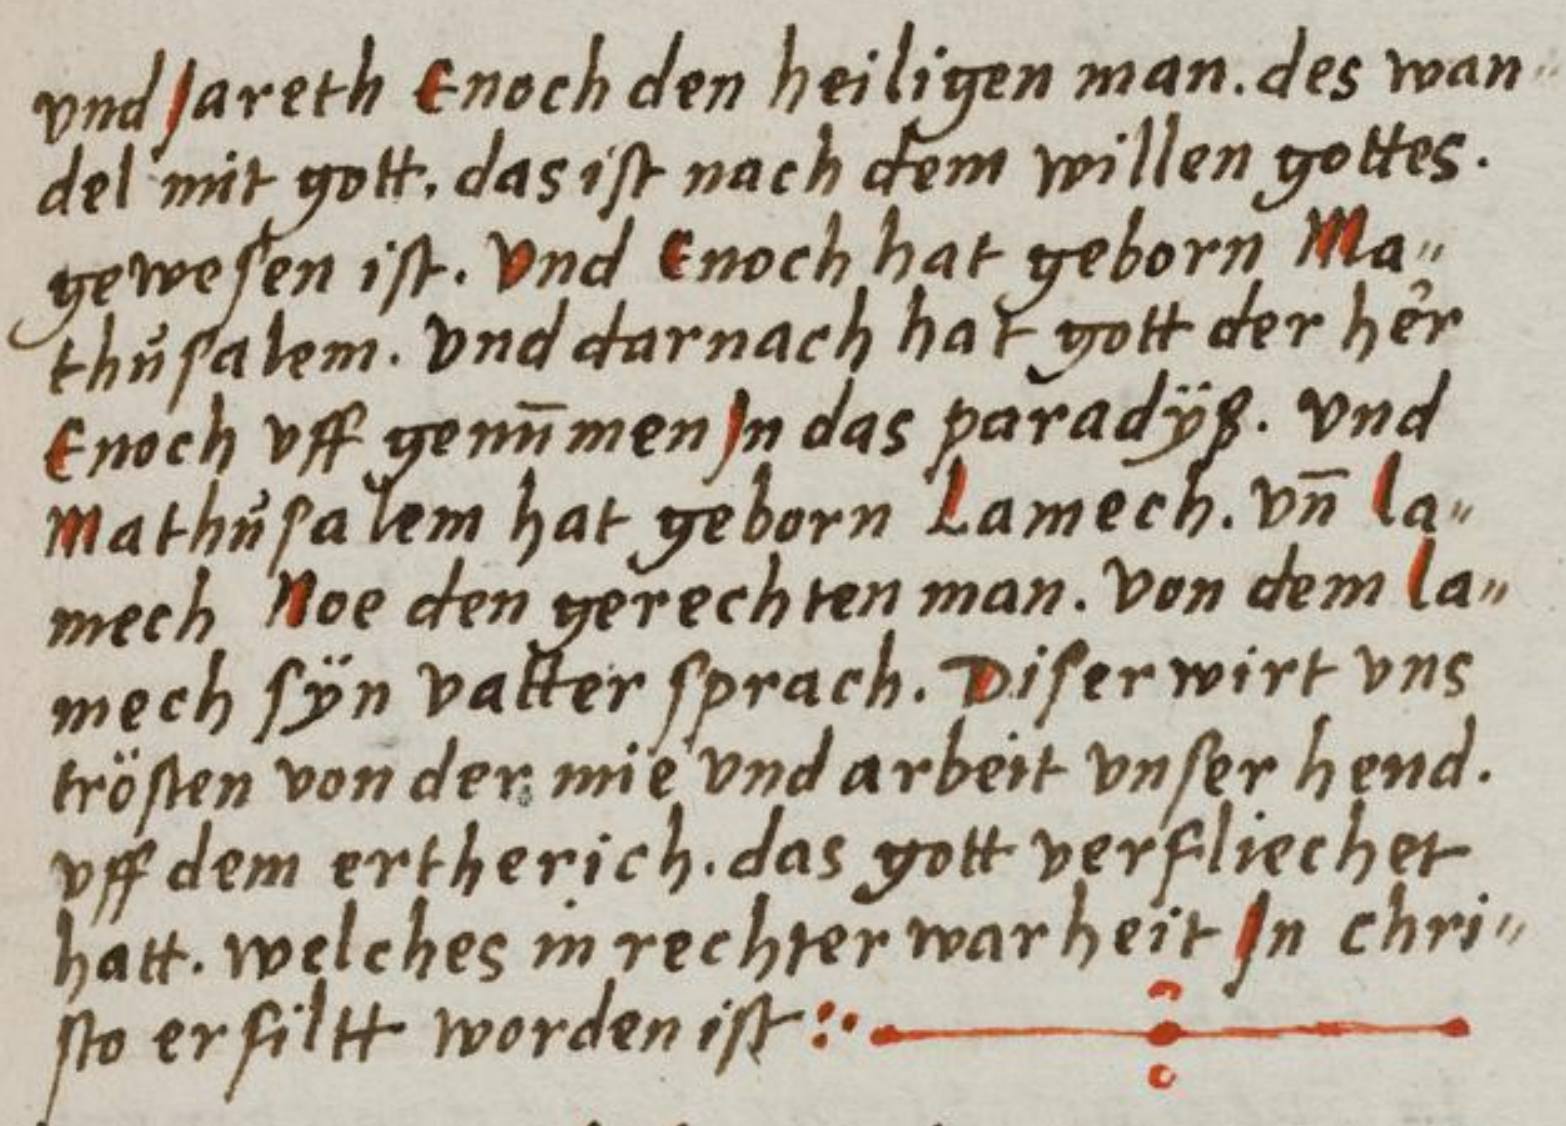 vnd Jareth Enoch den heiligen man. des wan„
del mit gott. das ist nach dem willen gottes.
gewesen ist. Vnd Enoch hat geborn Ma„
thůsalem. Vnd darnach hat gott der her
Enoch vff genūmen In das paradÿß. Vnd
Mathůsalem hat geborn Lamech. Vn̄ la„
mech Noe den gerechten man. Von dem la„
mech sÿn vatter sprach. Diser wirt vns
trösten von der mie vnd arbeit vnser hend.
vff dem ertherich. das gott verfliechet
hatt. welches in rechter warheit In chri„
sto erfiltt worden ist :·